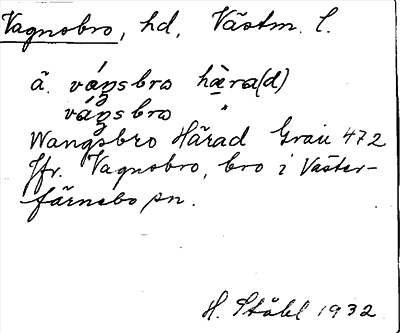 Vagnsbro, hd, Västm. l.
ä. våŋsbro hǟra(d)
våŋsbro "
Wangsbro Härad Grau 472
Jfr. Vagnsbro, bro i Väster-
färnebo sn.
H. Ståhl 1932